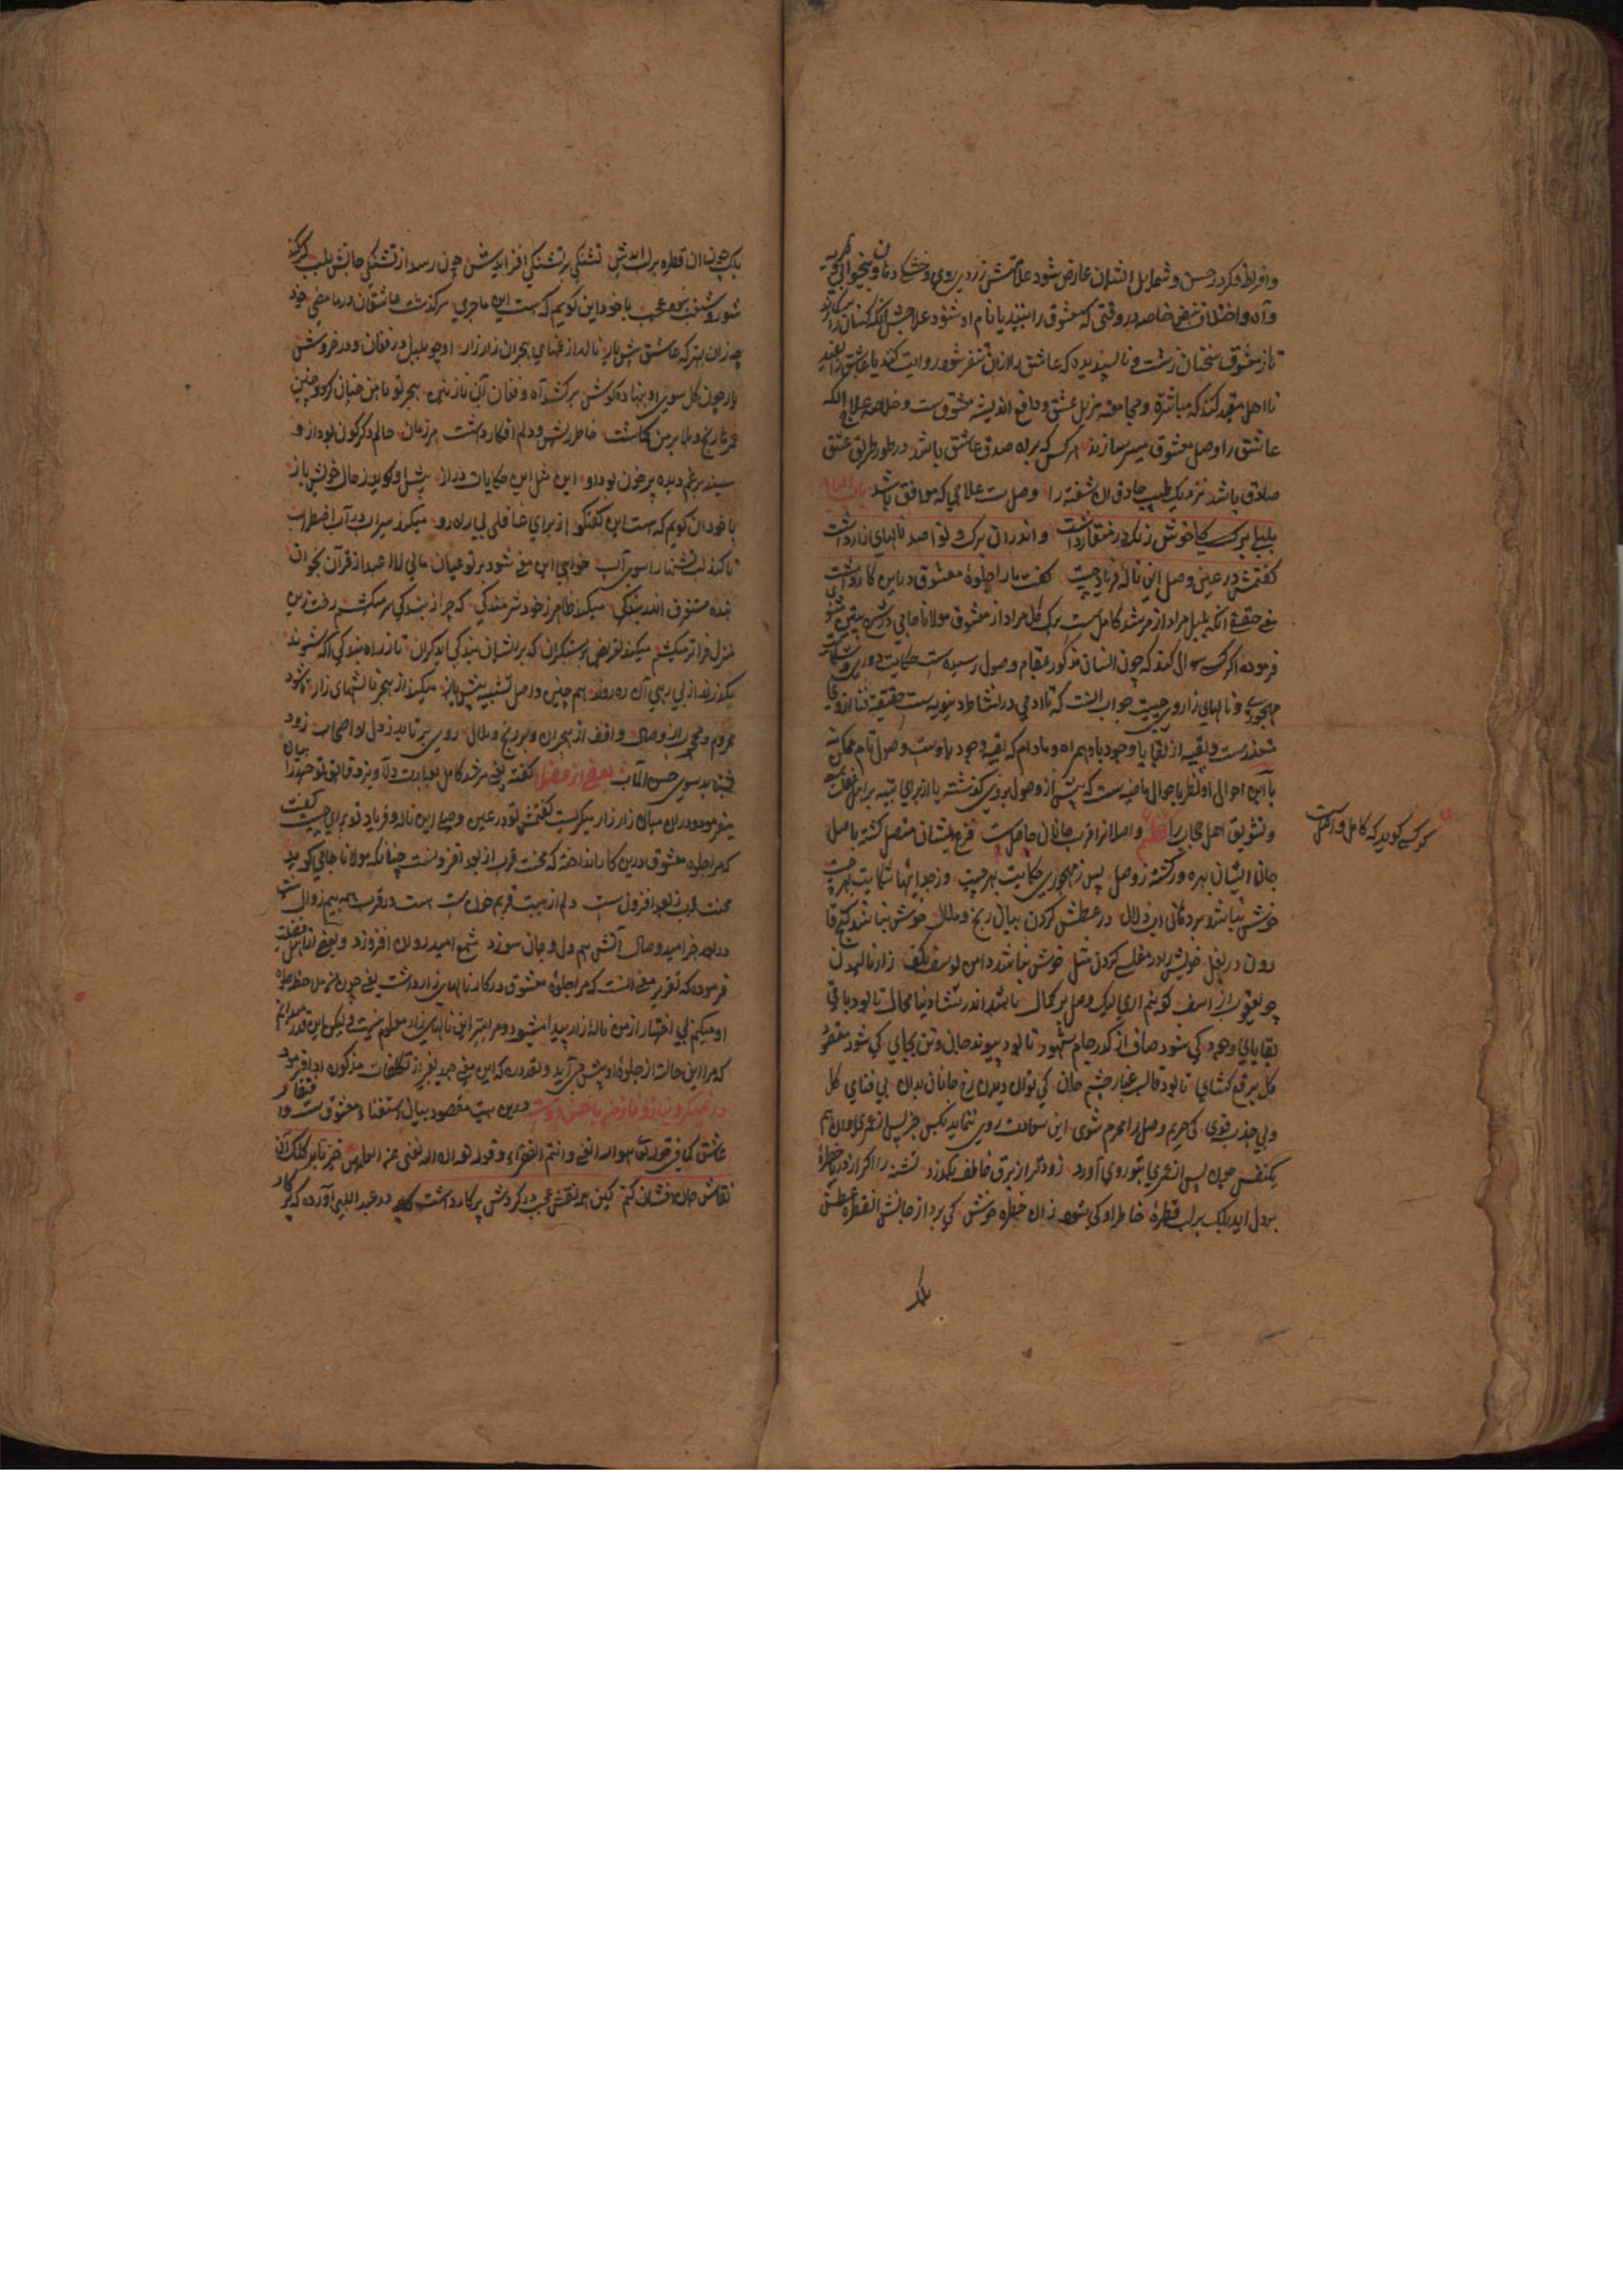 و افراط فکر در حسن و شمایل انسان عارض شود علامتش زردی روی و خشکی دهان و بیخوابی و گریه
و آه و اختلاف نبض خاصه در وقتی که معشوق را بیند یا نام او شنود علاجش آنکه کسان را بر کارند
تا از معشوق سخنان زشت و ناپسندیده که عاشق را از آن تنفر شود روایت کند یا عاشق را بقید
نا اهل مقید کند که مباشرة و مجامعه مزیل عشق و دافع اندیشه معشوق ست و خلاصه علاج آنکه
عاشق را وصل معشوق میسر سازند هر کس که براه صدق عاشق باشد در طور طریق عشق
صادق باشد نزدیک طبیب حاذق آن شفته را وصل ست علاجی که موافق باشد باب الباء
بلبلی برگ گلی خوش رنگ در منقار داشت و اندران برگ و نوا صد نالهای زار داشت
گفتمش در عین وصل این ناله و فریاد چیست گفت ما را جلوهٔ معشوق در این کار داشت
معنی حقیقة آنکه بلبل مراد از مرشد کامل ست برگ گل مراد از معشوق مولانا جامی در شرح بیتین مثنوی
فرموده اگر کسی سوال کند که چون انسان مذکور بمقام وصول رسیده ست حکایت دوری و شکایت
مهجوری و نالهای زار و چیست جواب آنست که تا آدمی در نشاط دنیویه ست حقیقة فنا از وفا
متعذر ست و بقیه از بقایا وجود باو همراه و مادام که بقیه وجود باوست وصول تام ممکن نه
یا این احوال او نظر باحوال ماضیه ست که پیش از وصول بروی گذشته یا از برای تنبیه برای غفلت
و تشویق اهل حجاب را نظم واصلانرا قرب جانان حاصل ست فرع ایشان متصل گشته باصل
جان ایشان بهره ور گشته ز وصل پس ز مهجوری حکایت بهر چیست وز جدایها شکایت بهر چیست
خوش نباشد بر دهانی آب زلال در عطش کردن بیان رنج و ملال خوش نباشد گنج قا
رون در بغل خویش را در مفلسی کردن مثل خوش نباشد دامن یوسف بکف زار نالیدن
چو یعقوب از اسف گوینم آری لیک وصل بر کمال باشد اندر نشاء دنیا محال تا بود باقی
بقایای وجود کی شود صاف از کدر جام شهود تا بود پیوند جان و تن بجای کی شود مقصود
کل برقع گشای تا بود قالب غبار چشم جان کی توان دیدن رخ جانان بدان بی فنای کل
و بی جذب قوی کی حریم وصل را محرم شوی این سعادت روی ننماید بکس جز پس از عمری و آن هم
یکنفس چون پس از عمری بتو روی آورد زودتر از برق خاطف بگذرد تشنه را اگر از دریا قطرهٔ
بر دل آید بلک بر لب قطرهٔ خاطر او کی شود زان خطره خوش کی برد از جانش آن قطره عطش
بلک
کو کسی گوید که کامل و واصل ست
بلک چون آن قطره بر لب آیدش تشنگی بر تشنگی افزایدش چون رسد از تشنگی جانش بلب گر کند
شور و شغب نبود عجب با خود این گویم که هست این ماجری سرگذشت عاشقان در ما مضی خود
چه زان بهتر که عاشق پیش یار نالد از غمهای هجران زار زار او چو بلبل در فغان و در خروش
یار چون گل سوی او بنهاده گوش برکشد آه و فغان آن نازنین هجر تو با من چنان کرد و چنین
غم تاریخ و بلا بر من گماشت خاطر ریش و دلم افکار داشت هر زمان حالم دگرگون بود از و
سینه پر غم دیده پر خون بود او این مثل این حکایات دراز پیش او گوید ز حال خویش باز
یا خود آن گویم که هست این گفتگو از برای غافلی بی راه رو میکند سیراب در آب اضطراب
تا کند لب تشنها را سوی آب خواهی این معنی شود بر تو عیان مالی لا اعبد از قرآن بخوان
بنده مستغرق اندر بندگی میکند ظاهر ز خود شرمندگی که چرا از بندگی سر میکشم رخت زین
منزل فراتر میکشم میکند تعریض بر مستکبران که بر ایشان بندگی آید گران تا ز راه بندگی آگه شوند
بگذرند از بی رهی آن ره روند هم چنین واصل تشبیب پیش یار میکند از هجر نالشهای زار تا شود
محروم و مهجور از وصال واقف از هجران و بر رنج و ملال روی بر تابد ز دل لو اصحاب زود
شتابد سوی حسن المآب بعضی از فضل گفته یعنی مرشد کامل بعبارت دلاویز و قایق توحید را بیان
میفرمود و در ان میان زار زار میگریست گفتمش تو در عین وصلی این ناله و فریاد تو برای چیست گفت
که مرا جلوه معشوق درین کار انداخته که محنت قرب از بعد افزونست چنانکه مولانا جامی گوید
محنت قرب ز بعد افزون ست دلم از هیبت قربم خون ست هست در قرب همه بیم زوال نیست
در بعد جز امید وصال آتش بیم دل و جان سوزد شمع امید روان افروزد و بعضی از اهل فضیلت
فرموده که تقریر معنی آنست که مرا جلوهٔ معشوق در کار نالهای زار داشت یعنی چون من حظ جلوه
او میکنم بی اختیار از من نالهٔ زار پیدا میشود و مرا سر این نالهای زار معلوم نیست ولیکن این قدر میدانم
که مرا این حالت از جلوهٔ او پیش می آید و نقد ره که این معنی جید بغیر از تکلفات مذکوره ادا فرمود
در نمیگیرد نیاز و ناز ما با حسن دوست درین بیت مقصود بیان استغناء معشوق ست و افتقار
عاشق کما فی قوله تعالی هو الله الغنی و انتم الفقراء و قوله تعالی ان الله لغنی عن العالمین خیز تا بر کلک آن
نقاش جان افشان کنم کین همه نقش عجب در گردش پرگار داشت در عبد اللهی آورده که پرگار